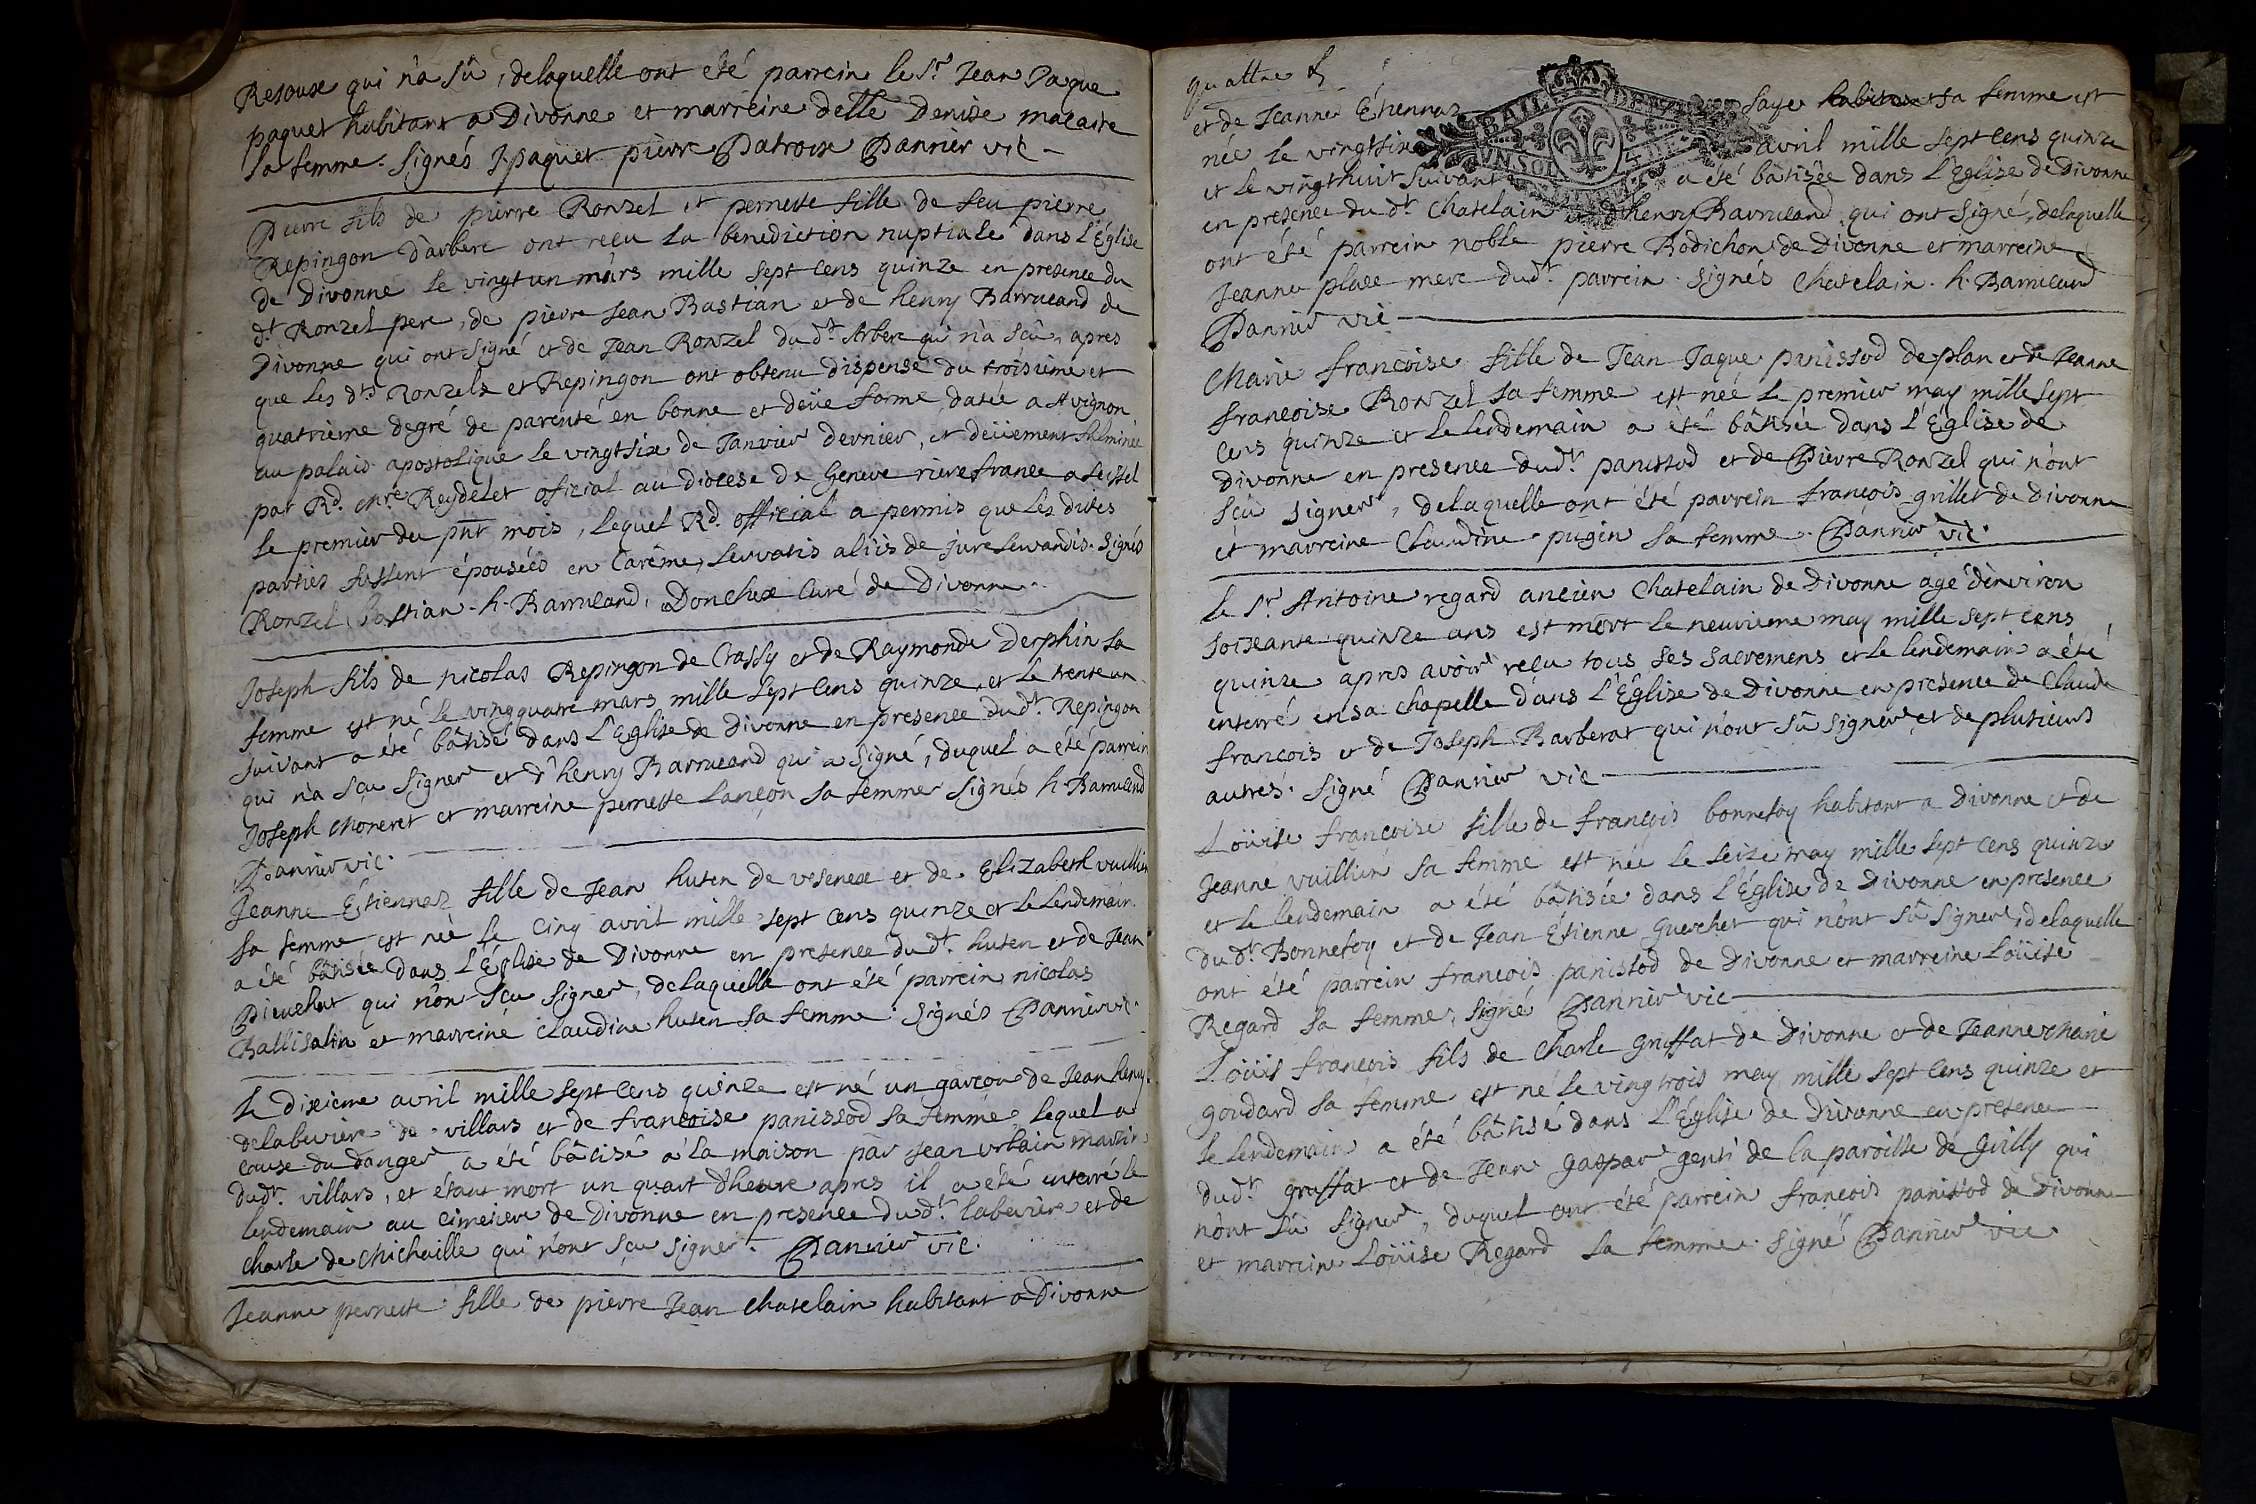 Resoux qui n'a sû, delaquelle ont eté parrein le Sr Jean Jaque
paquet habitant a Divonne et marreine delle Denise macaire
sa femme. Signés J. paquet pierre Patroix Pannier vic
Pierre fils de pierre Ronzel et pernette fille de feu pierre
Repingon d'arbere ont reçu la benediction nuptiale dans l'Église
de Divonne le vingt un mars mille sept cens quinze en presence du
dt Ronzel pere, de pierre Jean Bastian et de henry Barrucand de
Divonne qui ont signé et de Jean Ronzel du dt Arbere qui n'a sçû, apres
que les dts Ronzels et Repingon ont obtenu dispense du troisieme et
quatrième degré de parenté en bonne et deüe forme, datée a Avignon
au palais apostolique le vingt six de Janvier dernier, et deüement fulminée
par Rd. mre Reydelet oficial au diocese de Geneve riere france a Seissel
le premier du pnt mois, lequel Rd. official a permis que les dites
parties fussent épousées en Carême, servatis aliis de jure servandis. Signés
Ronzel Bastian. h. Barrucand, Donchex Curé de Divonne.
Joseph fils de nicolas Repingon de Crassy et de Raymonde Derphin sa
femme est né le vingquatre mars mille sept cens quinze, et le trente un
suivant a été bâtisé dans l'Eglise de Divonne en presence du dt. Repingon
qui n'a sçu signer et d'henry Barrucand qui a signé, duquel a été parrein
Joseph Moneret et marreine pernette Lançon sa femme signés h. Barrucand
Pannier vic.
Jeanne Étiennaz fille de Jean huten de vesenex et de Elizabeth vuillin
sa femme est née le cinq avril mille sept cens quinze et le lendemain
a été bâtisée dans l'Église de Divonne en presence du dt. huten et de Jean
qui n'ont sçu signer, delaquelle ont été parrein nicolas
Ballisalin et marreine Claudine huten sa femme. Signés Pannier vic.
Le dixieme avril mille sept cens quinze est né un garçon de Jean henry
delabeviere de villars et de francoise panissod sa femme, lequel a
cause du danger a été bâtisé a la maison par Jean urbain martin
du dt. villars, et étant mort un quart d'heure apres il a été enterré le
lendemain au cimetiere de Divonne en presence du dt. labeviere et de
charle de Michaille qui n'ont sçu signer. Pannier vic.
Jeanne pernette fille de pierre Jean chatelain habitant a Divonne
quattre
et de Jeanne Étiennaz saye habitant sa femme est
née le vingtsix avril mille sept cens quinze
et le vingt huit suivant a été bâtisée dans l'Eglise de Divonne
en presence du dt. Chatelain et d'henry Barrucand qui ont signé, delaquelle
ont été parrein noble pierre Rodichon de Divonne et marreine
Jeanne place mere du dt. parrein. signés Chatelain. h. Barrucand
Pannier vic
BAIL DE
UN SOL 4 DE
Marie françoise fille de Jean Jaque panissod de plan et de Jeanne
francoise Ronzel sa femme est née le premier may mille sept
cens quinze et le lendemain a été bâtisée dans l'Église de
Divonne en presence du dt. panissod et de Pierre Ronzel qui n'ont
sçû signer, delaquelle ont été parrein françois grillet de Divonne
et marreine Claudine pugin sa femme. Pannier vic.
Le Sr Antoine regard ancien Chatelain de Divonne agé d'environ
soixante quinze ans est mort le neuvieme may mille sept cens
quinze apres avoir reçu tous ses sacremens et le lendemain a été
enterré en sa chapelle dans l'Église de Divonne en presence de Claude
françois et de Joseph Barberat qui n'ont sû signer et de plusieurs
autres. Signé Pannier vic
Loüise francoise fille de françois bonnefoy habitant a Divonne et de
Jeanne vuillin sa femme est née le seize may mille sept cens quinze
et le lendemain a été bâtisée dans l'Église de Divonne en presence
du dt. Bonnefoy et de Jean Étienne guerchet qui n'ont sû signer, delaquelle
ont été parrein francois panissod de Divonne et marreine Loüise
Regard sa femme. Signé Pannier vic
Loüis françois fils de Charle gruffat de Divonne et de Jeanne Marie
goudard sa femme est né le vingtrois may mille sept cens quinze et
le lendemain a été bâtisé dans l'Église de Divonne en presence
du dt. gruffat et de Jean gaspar genti de la paroisse de grilly qui
n'ont sû signer, duquel ont été parrein francois panissod de Divonne
et marreine Loüise Regard sa femme. Signé Pannier vic